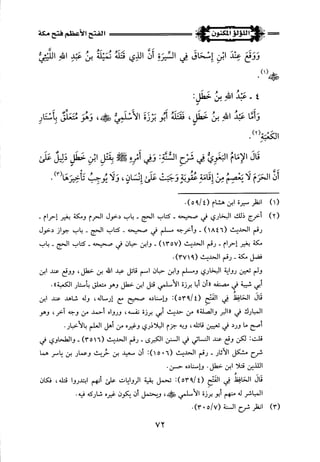 اللؤلؤ المكنون
الفتح الأعظم فتح مكة
ووقع عند ابن إسحاق في السيرة أن الذي قتله نميلة بن عبد الله الليثي
(١).
٤ - عبد الله بن خطل:
وأما عبد الله بن خطل، فقتله أبو برزة الأسلمي ﷺ، وهو متعلق بأستار
الكعبة(٢).
قال الإمام البغوي في شرح السنة: وفي أمره ﷺ بقتل ابن خطل دليل على
أن الحرم لا يعصم من إقامة عقوبة وجبت على إنسان، ولا يوجب تأخيرها(٣).
(١) انظر سيرة ابن هشام (٥٩/٤).
(٢) أخرج ذلك البخاري في صحيحه - كتاب الحج - باب دخول الحرم ومكة بغير إحرام -
رقم الحديث (١٨٤٦) - وأخرجه مسلم في صحيحه - كتاب الحج - باب جواز دخول
مكة بغير إحرام - رقم الحديث (١٣٥٧) - وابن حبان في صحيحه - كتاب الحج - باب
فضل مكة - رقم الحديث (٣٧١٩).
ولم تعين رواية البخاري ومسلم وابن حبان اسم قاتل عبد الله بن خطل، ووقع عند ابن
أبي شيبة في مصنفه أن أبا برزة الأسلمي قتل ابن خطل وهو متعلق بأستار الكعبة.
قال الحافظ في الفتح (٥٣٩/٤): وإسناده صحيح مع إرساله، وله شاهد عند ابن
المبارك في «البر والصلة» من حديث أبي برزة نفسه، ورواه أحمد من وجه آخر، وهو
أصح ما ورد في تعيين قاتله، وبه جزم البلاذري وغيره من أهل العلم بالأخبار.
قلت: لكن وقع عند النسائي في السنن الكبرى - رقم الحديث (٣٥١٦) - والطحاوي في
شرح مشكل الآثار - رقم الحديث (١٥٠٦): أن سعيد بن حريث وعمار بن ياسر هما
اللذين قتلا ابن خطل. وإسناده حسن.
قال الحافظ في الفتح (٥٣٩/٤): تحمل بقية الروايات على أنهم ابتدروا قتله، فكان
المباشر له منهم أبو برزة الأسلمي ﷺ، ويحتمل أن يكون غيره شاركه فيه.
(٣) انظر شرح السنة (٣٠٥/٧).
٧٢